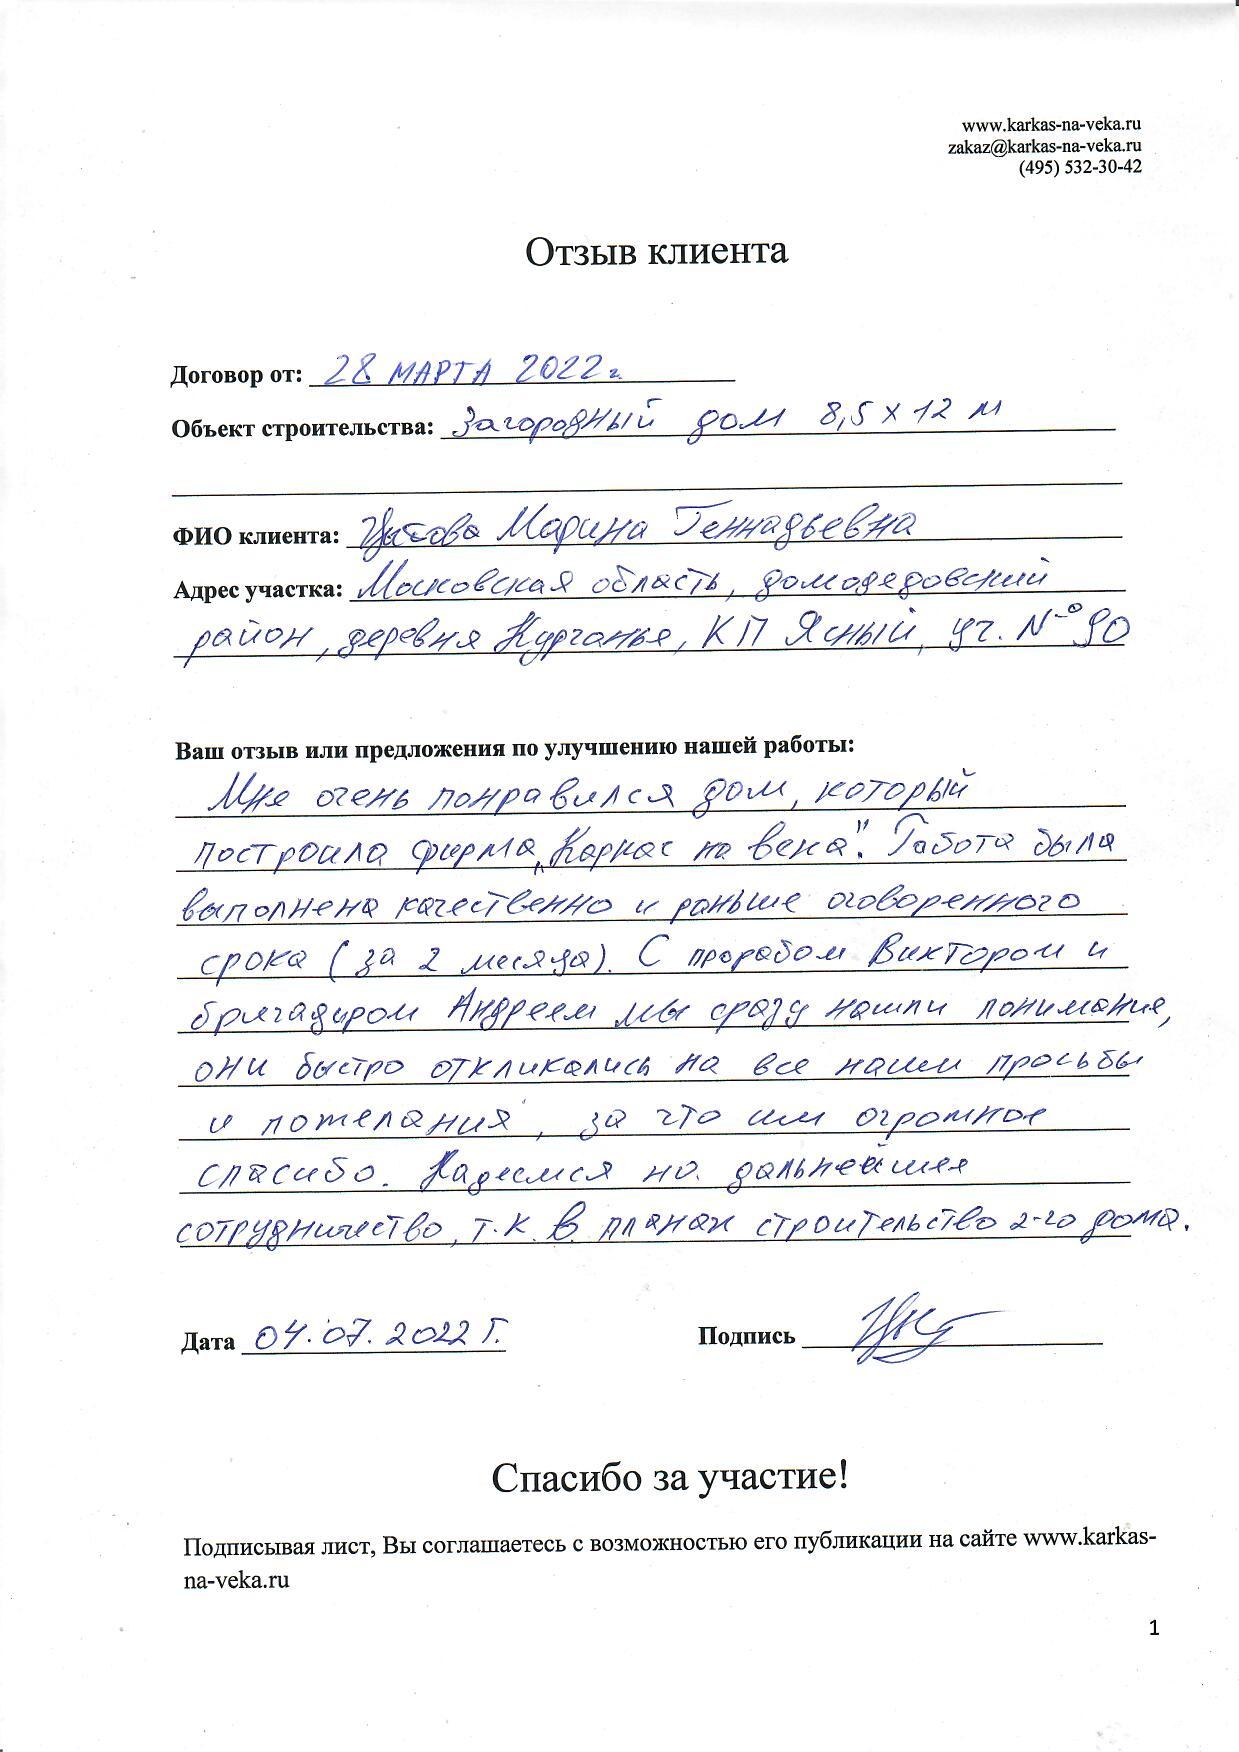 www.karkas-na-veka.ru
zakaz@karkas-na-veka.ru
(495) 532-30-42
Отзыв клиента
Договор от: 28 МАРТА 2022 г.
Объект строительства: Загородный дом 8,5 х 12 м
ФИО клиента: Марина Геннадьевна
Адрес участка: Московская область, домодедовский
район, деревня Курганье, КП Ясный, уч. № 90
Ваш отзыв или предложения по улучшению нашей работы:
Мне очень понравился дом, который
построила фирма „Каркас на века". Работа была
выполнена качественно и раньше оговоренного
срока (за 2 месяца). С прорабом Виктором и
бригадиром Андреем мы сразу нашли понимание,
они быстро откликались на все наши просьбы
и пожелания, за что им огромное
спасибо. Надеемся на дальнейшее
сотрудничество, т.к. в планах строительство 2-го дома.
Дата 04.07.2022 г. Подпись
Спасибо за участие!
Подписывая лист, Вы соглашаетесь с возможностью его публикации на сайте www.karkas-
na-veka.ru
1